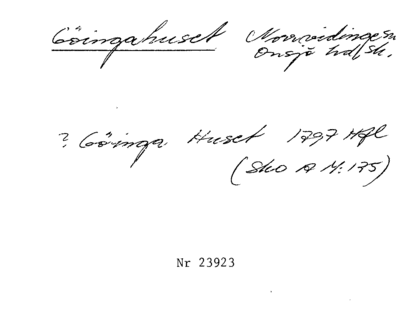 Göingahuset Norrvidinge sn
Onsjö hd, Sk.
? Göinga Huset 1797 Hfl
(Sko A M: 175)
Nr 23923